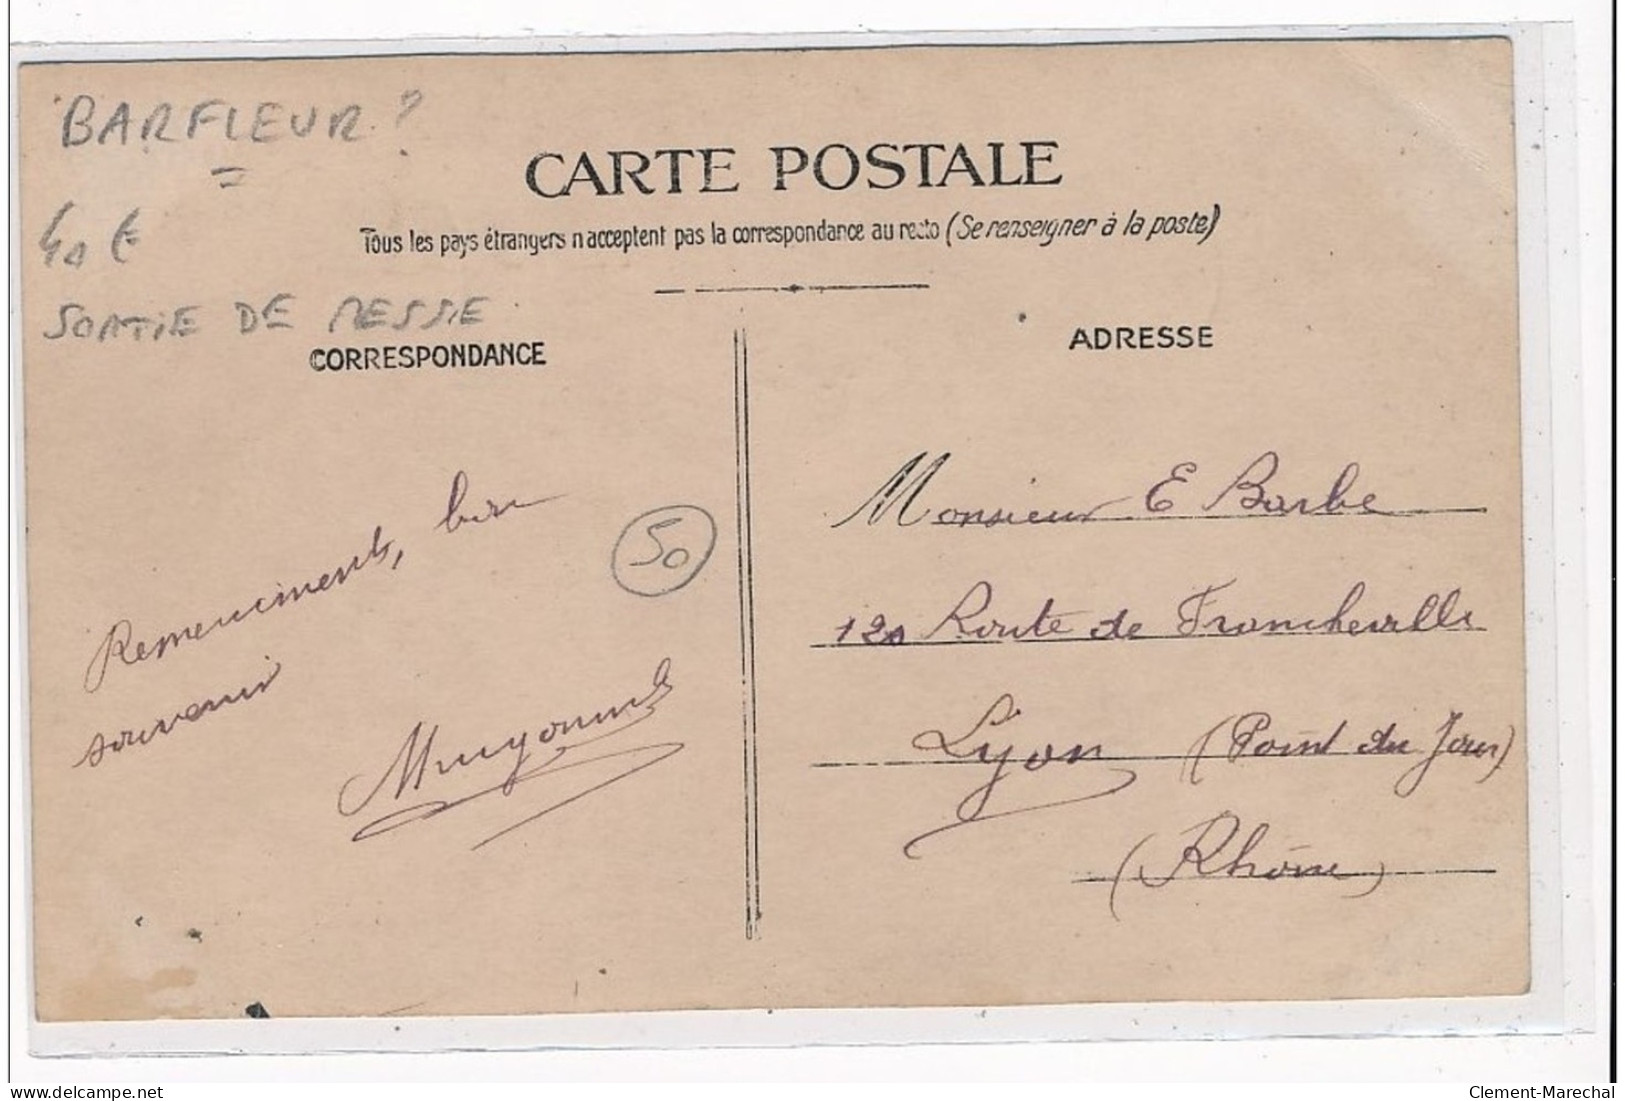 BARFLEUR ?
CARTE POSTALE
40 €
Tous les pays étrangers n'acceptent pas la correspondance au recto (Se renseigner à la poste)
SORTIE DE MESSE
CORRESPONDANCE
ADRESSE
Remerciments, bon
souvenir
50
Monsieur E Barbe
120 Route de Francheville
Lyon (Point du Jour)
(Rhône)
delcampe.net
Clement-Marechal